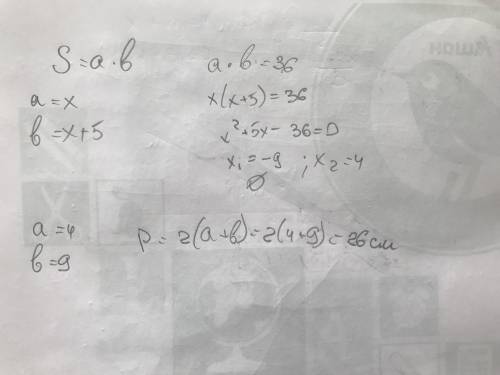 S = a · b
a = x
b = x+5
a · b = 36
x(x+5) = 36
x² + 5x - 36 = 0
x₁ = -9 ; x₂ = 4
∅
a = 4
b = 9
P = 2(a+b) = 2(4+9) = 26 см
Ашан